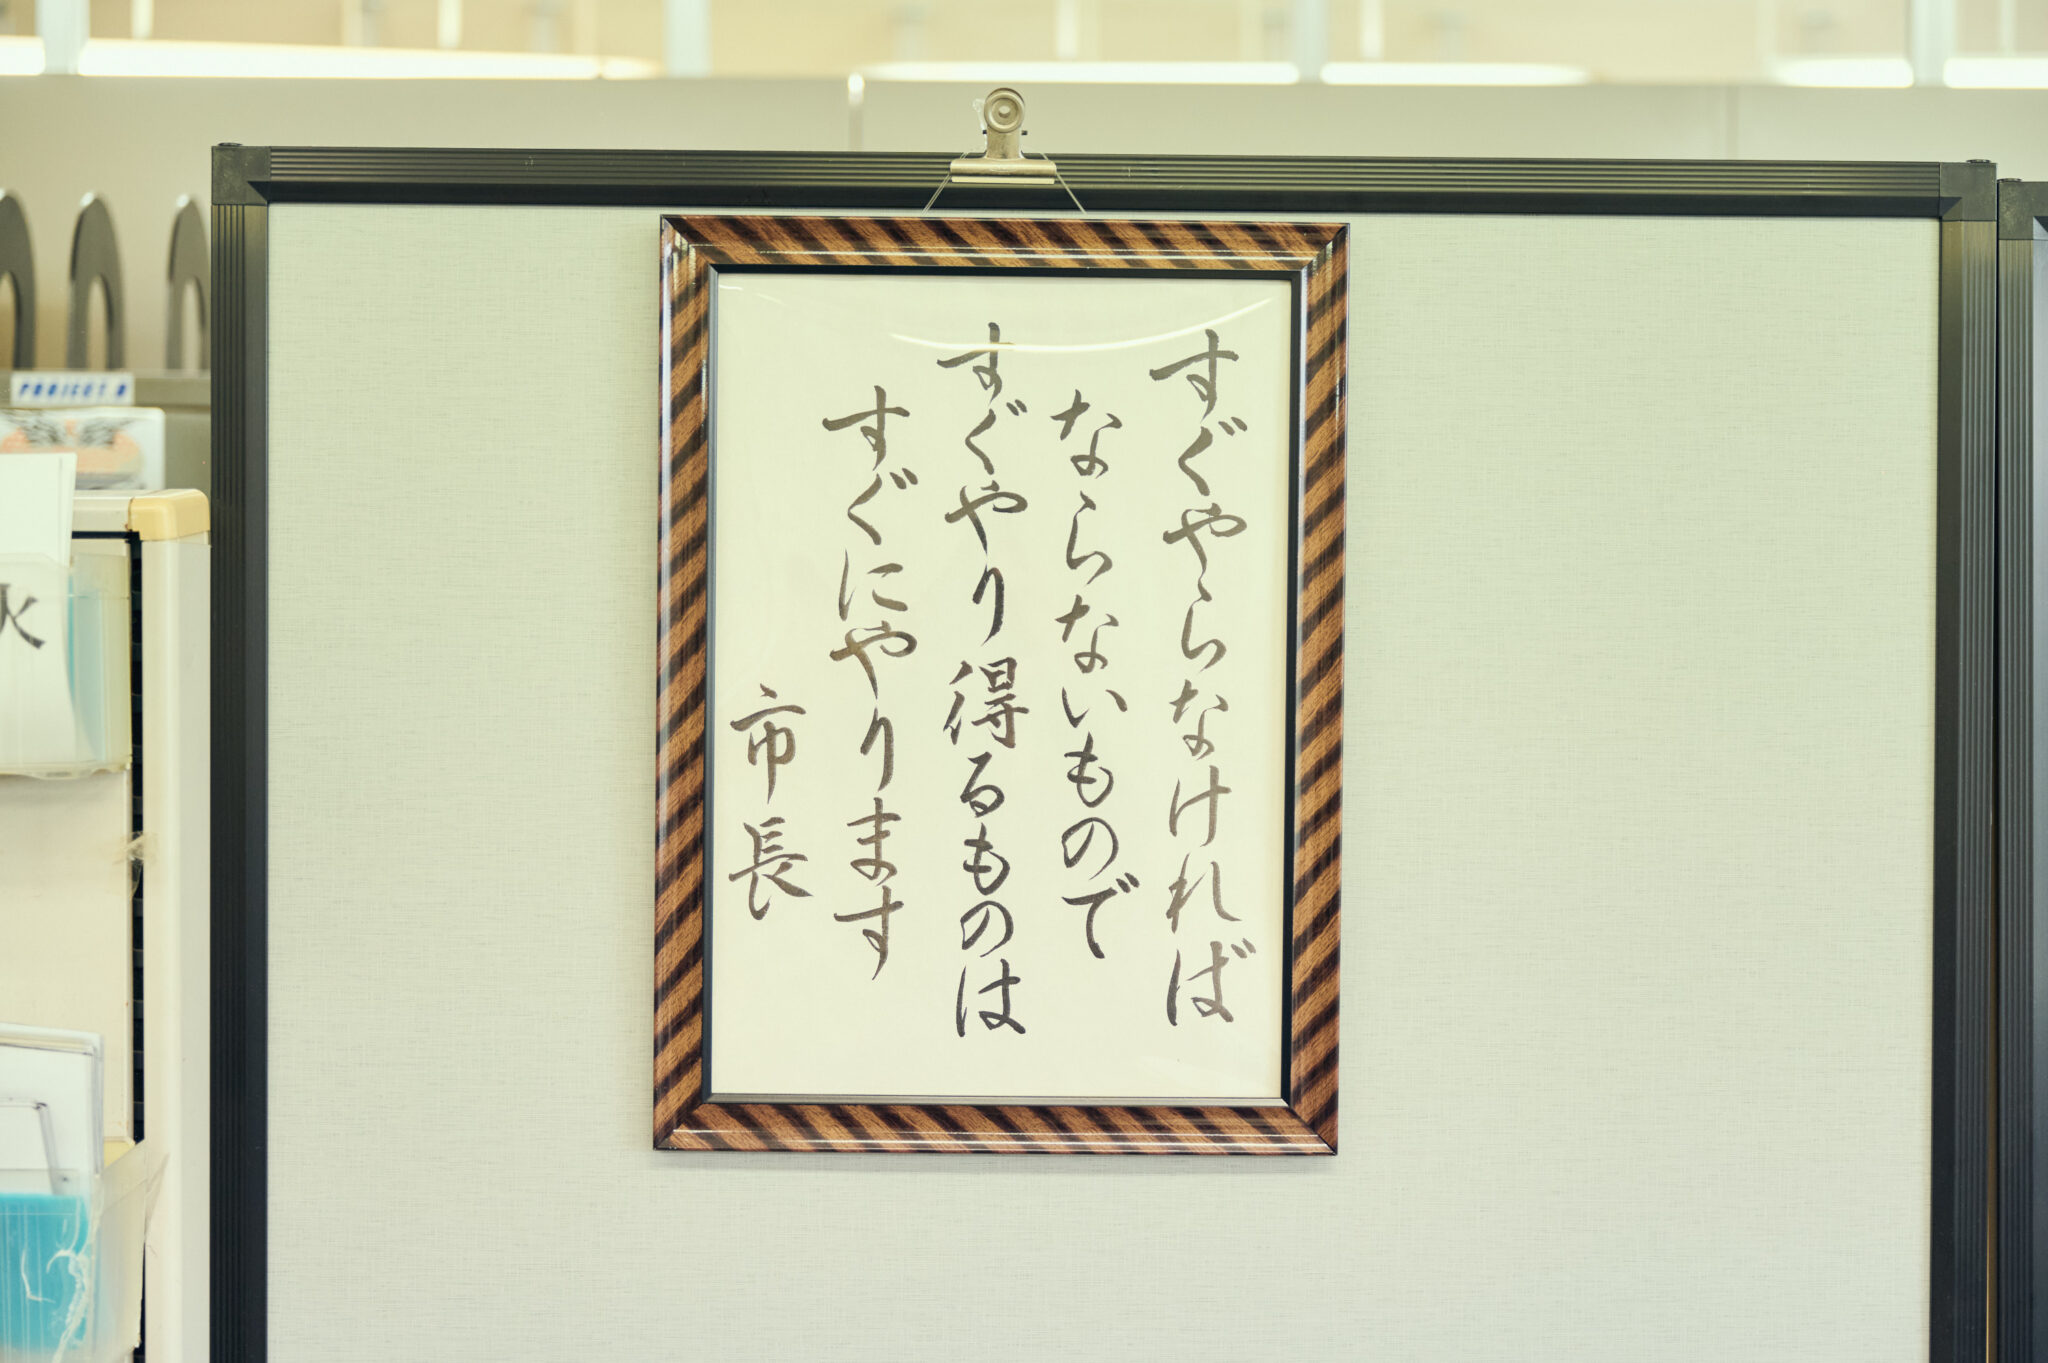 すぐやらなければ
ならないもので
すぐやり得るものは
すぐにやります
市長